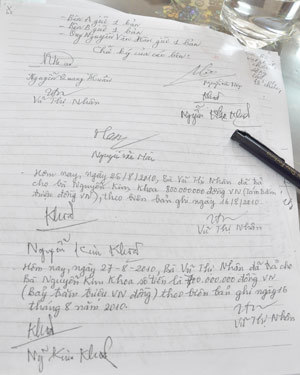 - Bên A giữ 1 bản
- Bên B giữ 1 bản
- Ông Nguyễn Văn Hải giữ 1 bản
Chữ ký của các bên:
Khoa
Nguyễn Quang Khuân
Vũ Thị Nhân
Khoa
Nguyễn Kim Khoa
Nguyễn văn Hải
Hôm nay, ngày 25/8/2010, Bà Vũ Thị Nhân đã trả
cho bà Nguyễn Kim Khoa 800.000.000 đồng VN (Tám trăm
triệu đồng VN), theo biên bản ghi ngày 16/8/2010
Khoa
Vũ Thị Nhân
Nguyễn Kim Khoa
Hôm nay, ngày 27-8-2010, Bà Vũ Thị Nhân đã trả cho
Bà Nguyễn Kim Khoa số tiền là 700.000.000 đồng VN
(bảy trăm triệu VN đồng) theo biên bản ghi ngày 16
tháng 8 năm 2010.
Khoa
Vũ Thị Nhân
Ng Kim Khoa